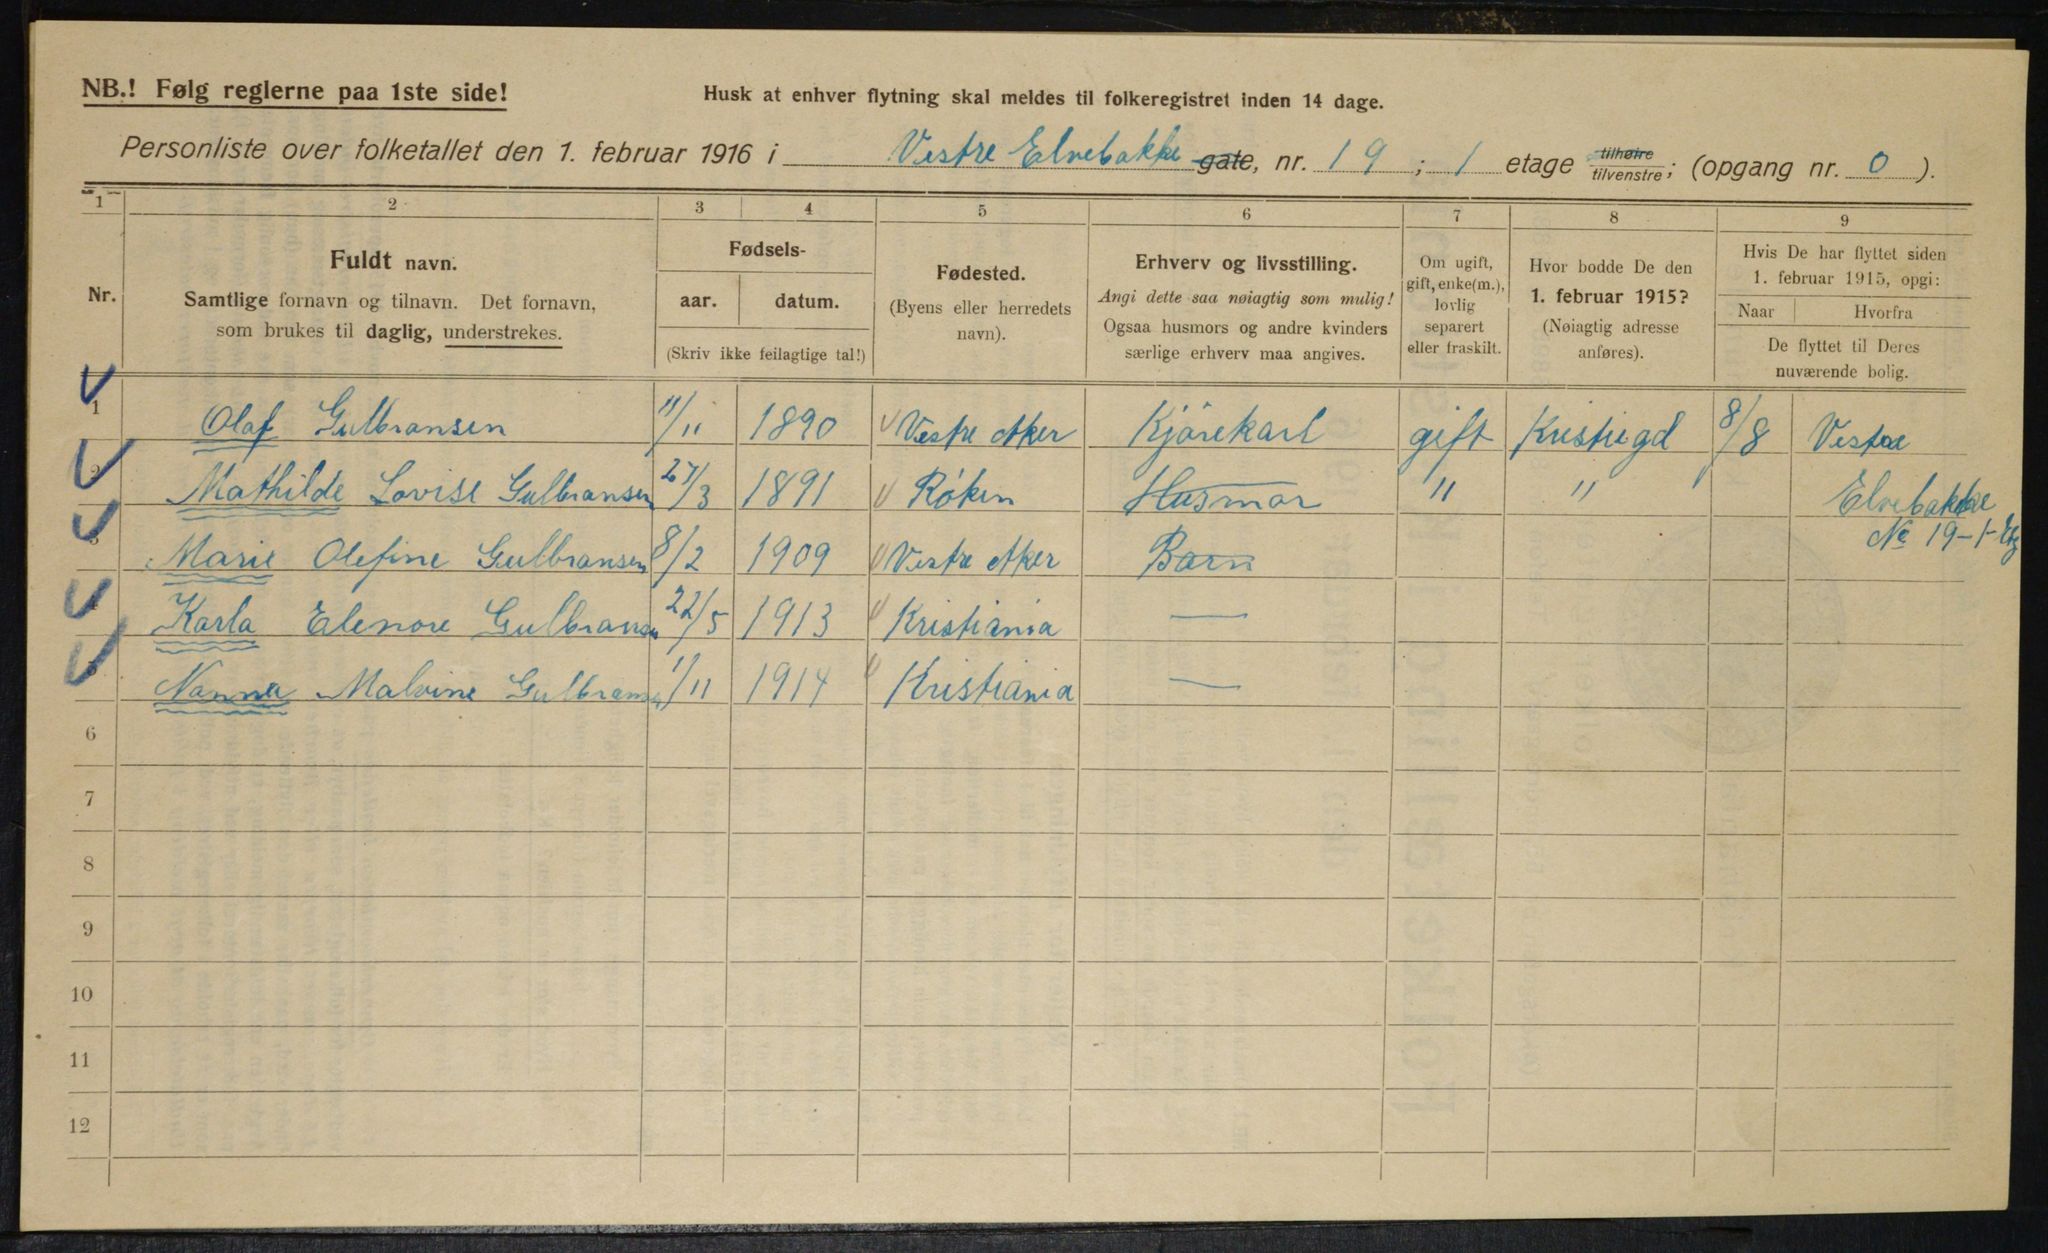 NB.! Følg reglerne paa 1ste side!
Husk at enhver flytning skal meldes til folkeregistret inden 14 dage.
Personliste over folketallet den 1. februar 1916 i Vestre Elvebakke gate, nr. 19 ; 1 etage tilhøire tilvenstre ; (opgang nr. 0 ).
1 2 3 4 5 6 7 8 9
Nr.
Fuldt navn.
Samtlige fornavn og tilnavn. Det fornavn,
som brukes til daglig, understrekes.
Fødsels-
aar. datum.
(Skriv ikke feilagtige tal!)
Fødested.
(Byens eller herredets
navn).
Erhverv og livsstilling.
Angi dette saa nøiagtig som mulig!
Ogsaa husmors og andre kvinders
særlige erhverv maa angives.
Om ugift,
gift, enke(m.),
lovlig
separert
eller fraskilt.
Hvor bodde De den
1. februar 1915?
(Nøiagtig adresse
anføres).
Hvis De har flyttet siden
1. februar 1915, opgi:
Naar Hvorfra
De flyttet til Deres
nuværende bolig.
1 Olaf Gulbransen 11/11 1890 Vestre Aker Kjørekarl gift 8/8 Vestre
2 Mathilde Lovise Gulbransen 27/3 1891 Røken Husmor " " Elvebakke
No 19-1-Etg
3 Marie Olefine Gulbransen 8/2 1909 Vestre Aker Barn
4 Karla Elenore Gulbransen 22/5 1913 Kristiania —
5 Nanna Malvine Gulbransen 1/11 1914 Kristiania —
6
7
8
9
10
11
12